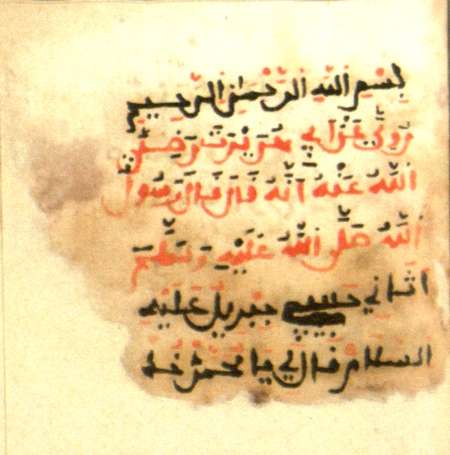 بسم الله الرحمن الرحيم
روي عن أبي هريرة رضي
الله عنه أنه قال قال رسول
الله صلى الله عليه وسلم
اتاني حبيبي جبريل عليه
السلام فقال لي يا محمد خذ